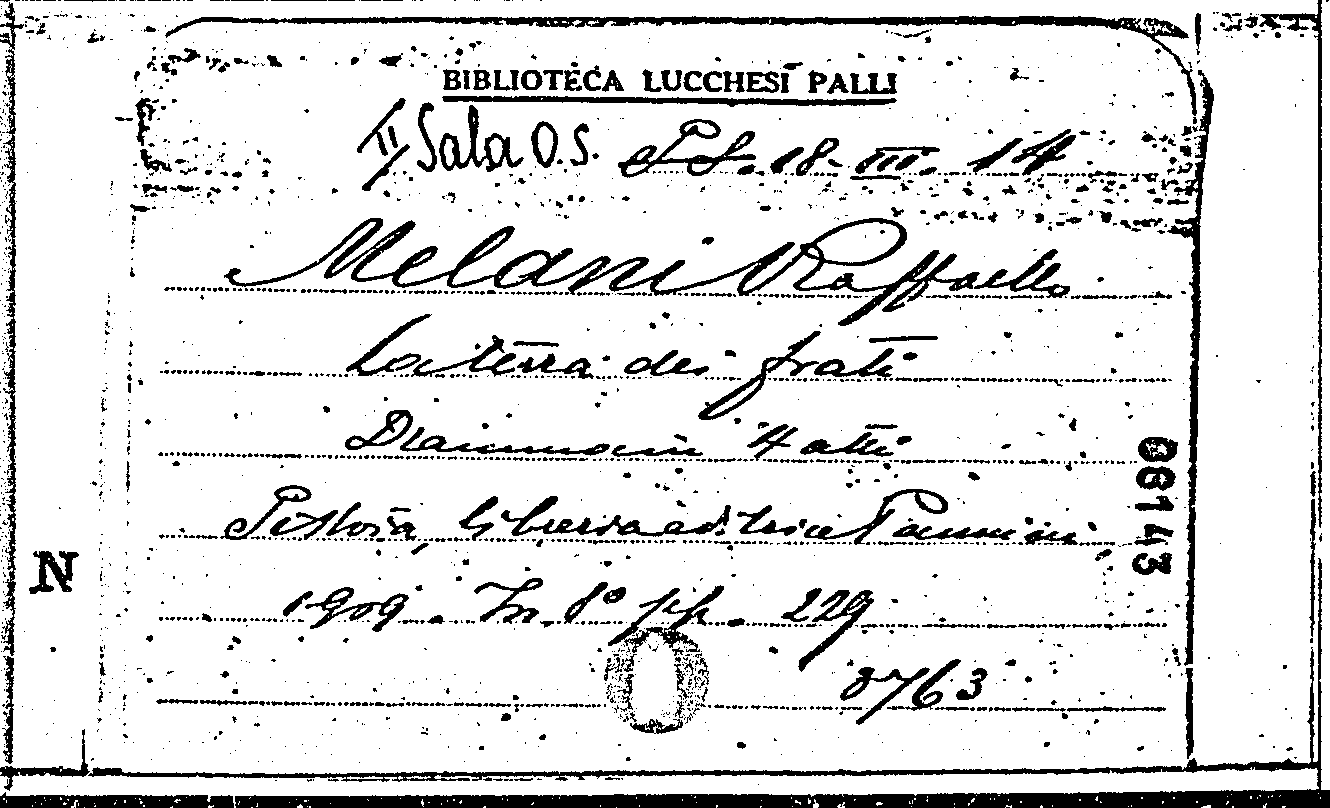 BIBLIOTECA LUCCHESI PALLI
II Sala O.S. P.S. 18-III. 14
Melani Raffaello
La terra dei frati
Dramma in 4 atti
Pistoia, libreria editrice Pannini,
1909. In 8° pp. 229
8763
N
66143